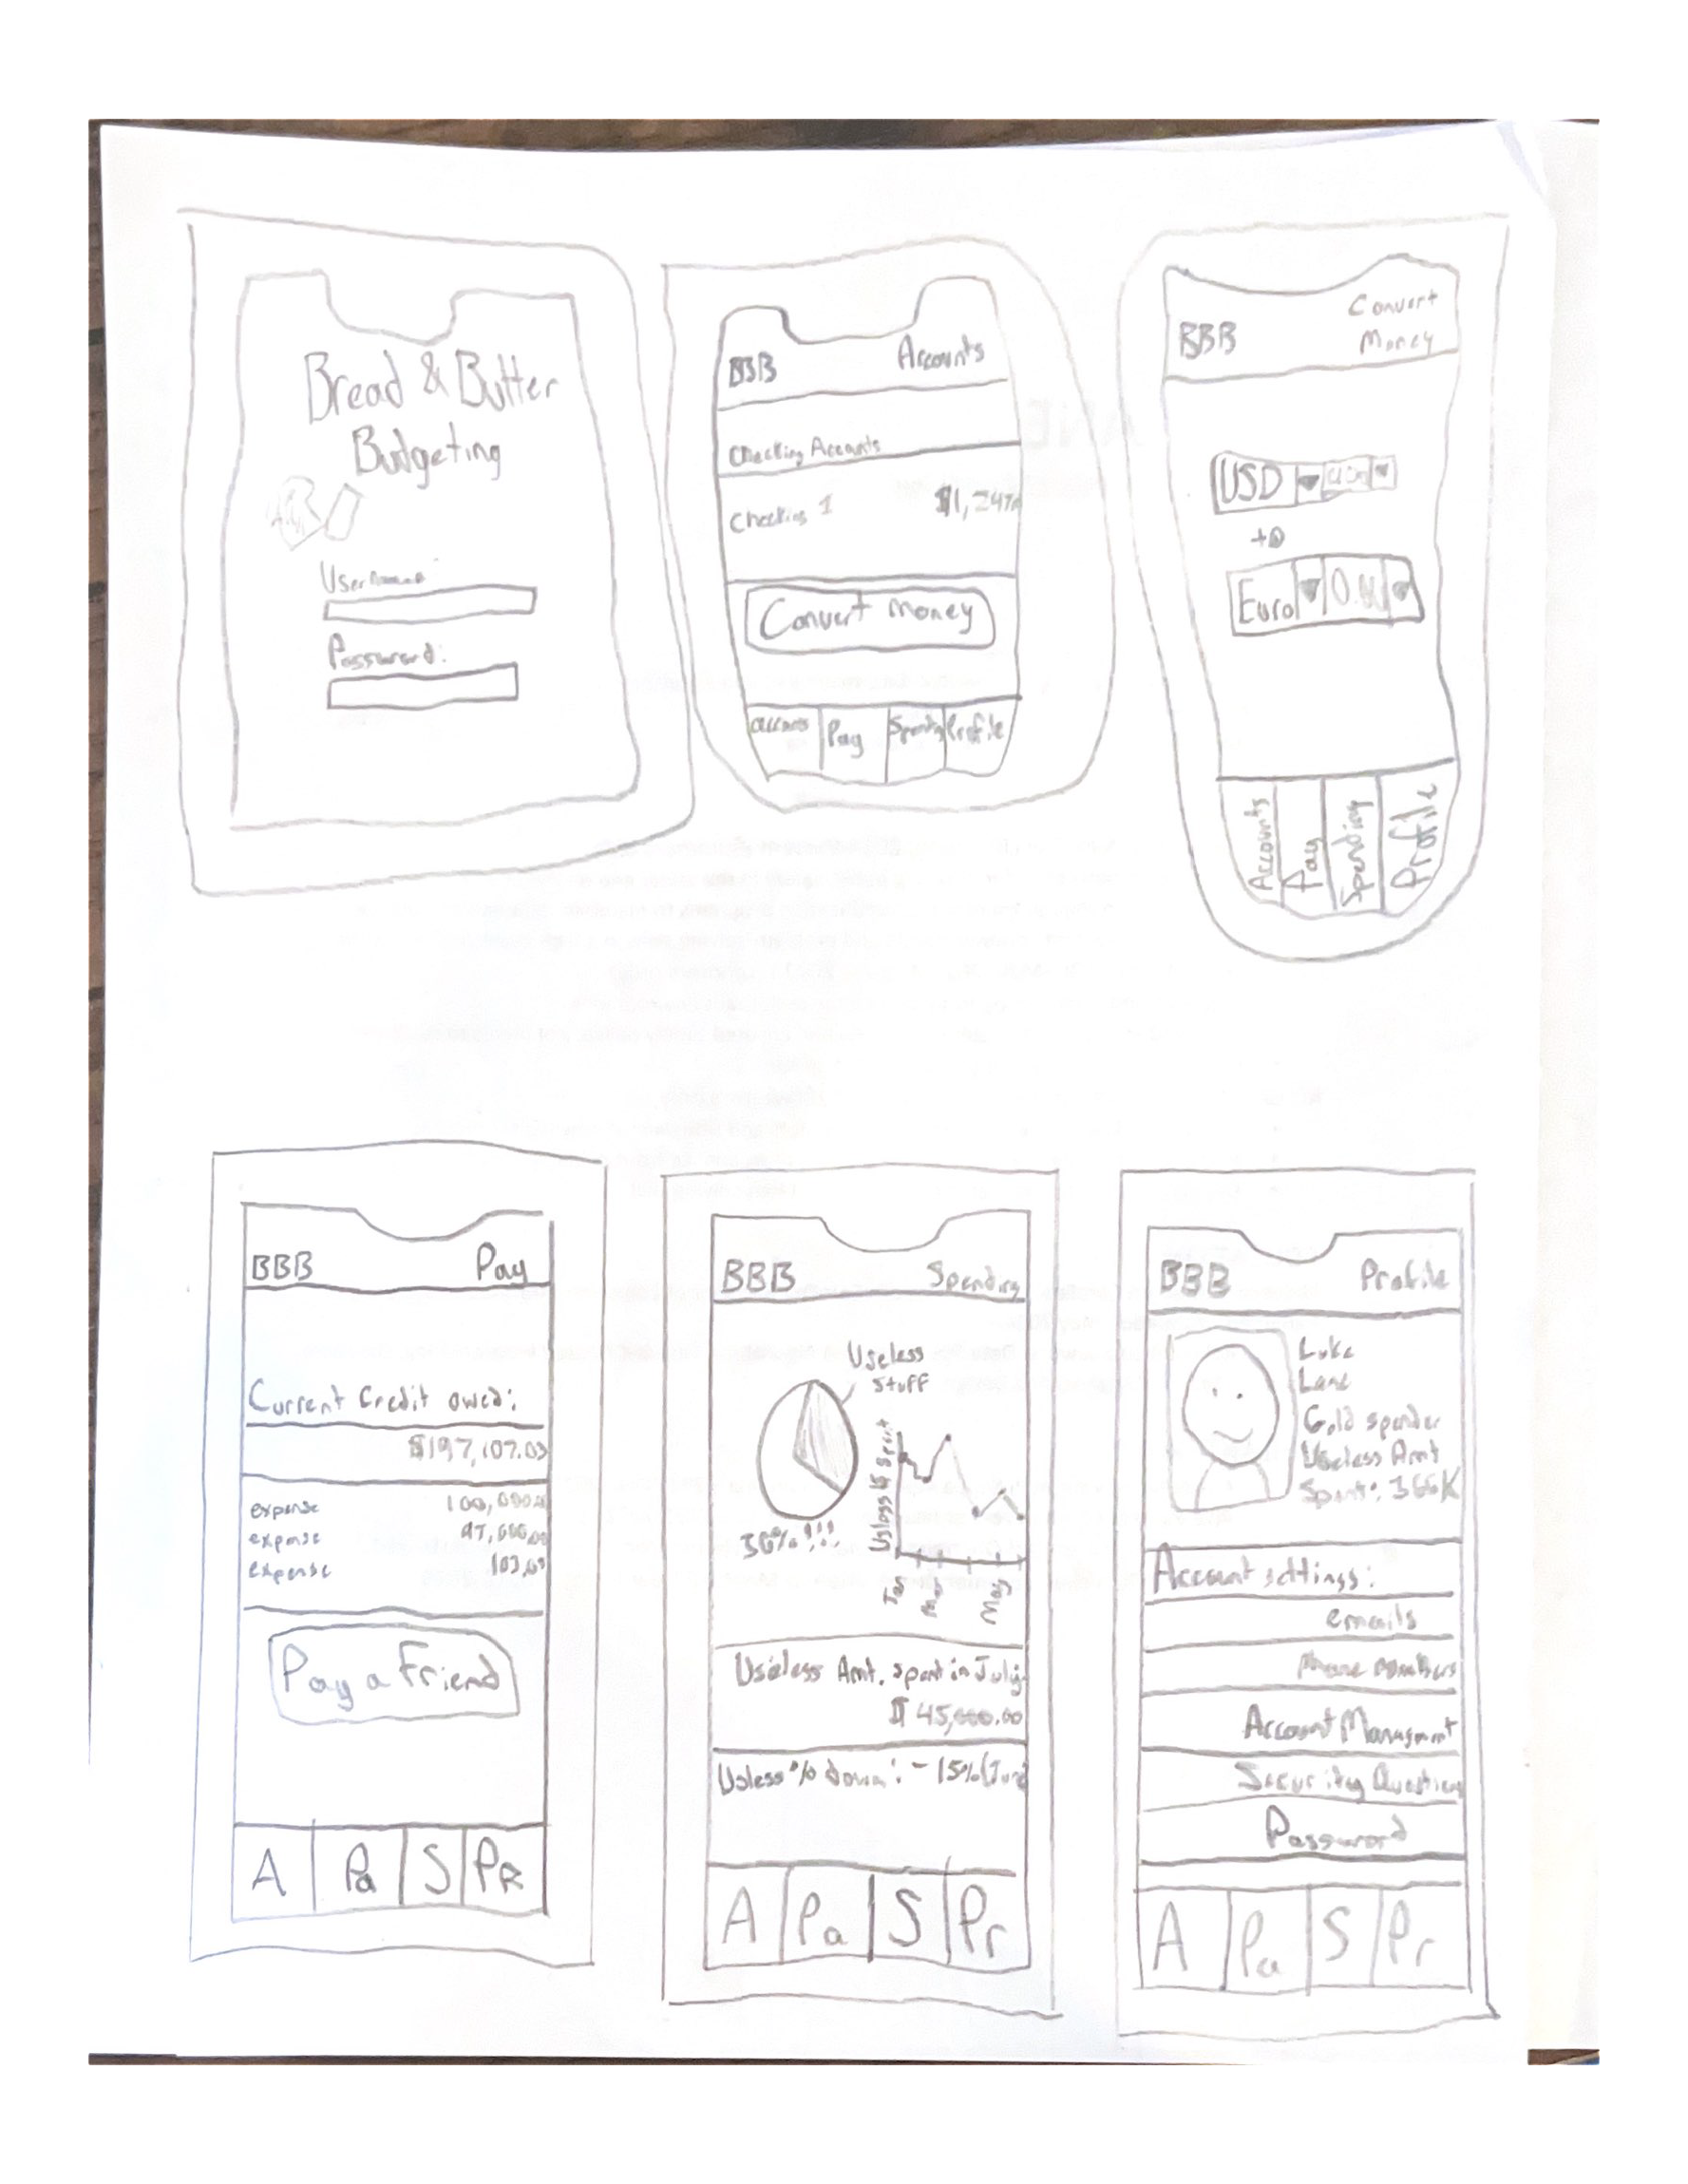 Bread & Butter
Budgeting
Username:
Password:
BBB Accounts
Checking Accounts
Checking 1
Convert money
Pay
Spending
Profile
BBB
Convert
Money
USD
to
Euro
Accounts
Pay
Spending
Profile
BBB Pay
Current Credit owed:
$197,107.03
expense
expense
expense
Pay a Friend
A Pa S PR
BBB Spending
Useless
Stuff
30% !!!
May
Useless Amt. spent in July
$ 45,000.00
A Pa S Pr
BBB Profile
Luke
Lane
Gold spender
Useless Amt
Spent: 366K
Account settings:
emails
Phone numbers
Account Managment
Security Question
Password
A Pa S Pr